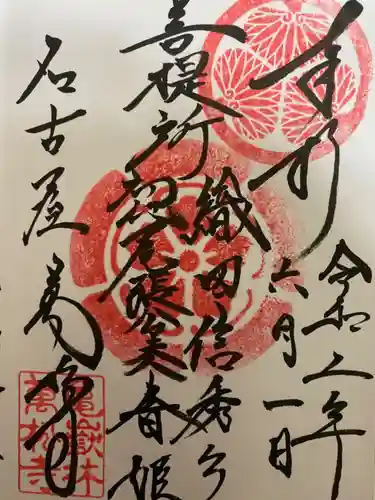 奉拝
令和二年
六月一日
菩提所
織田信秀公
春姫
名古屋 萬松寺
亀嶽林
萬松寺